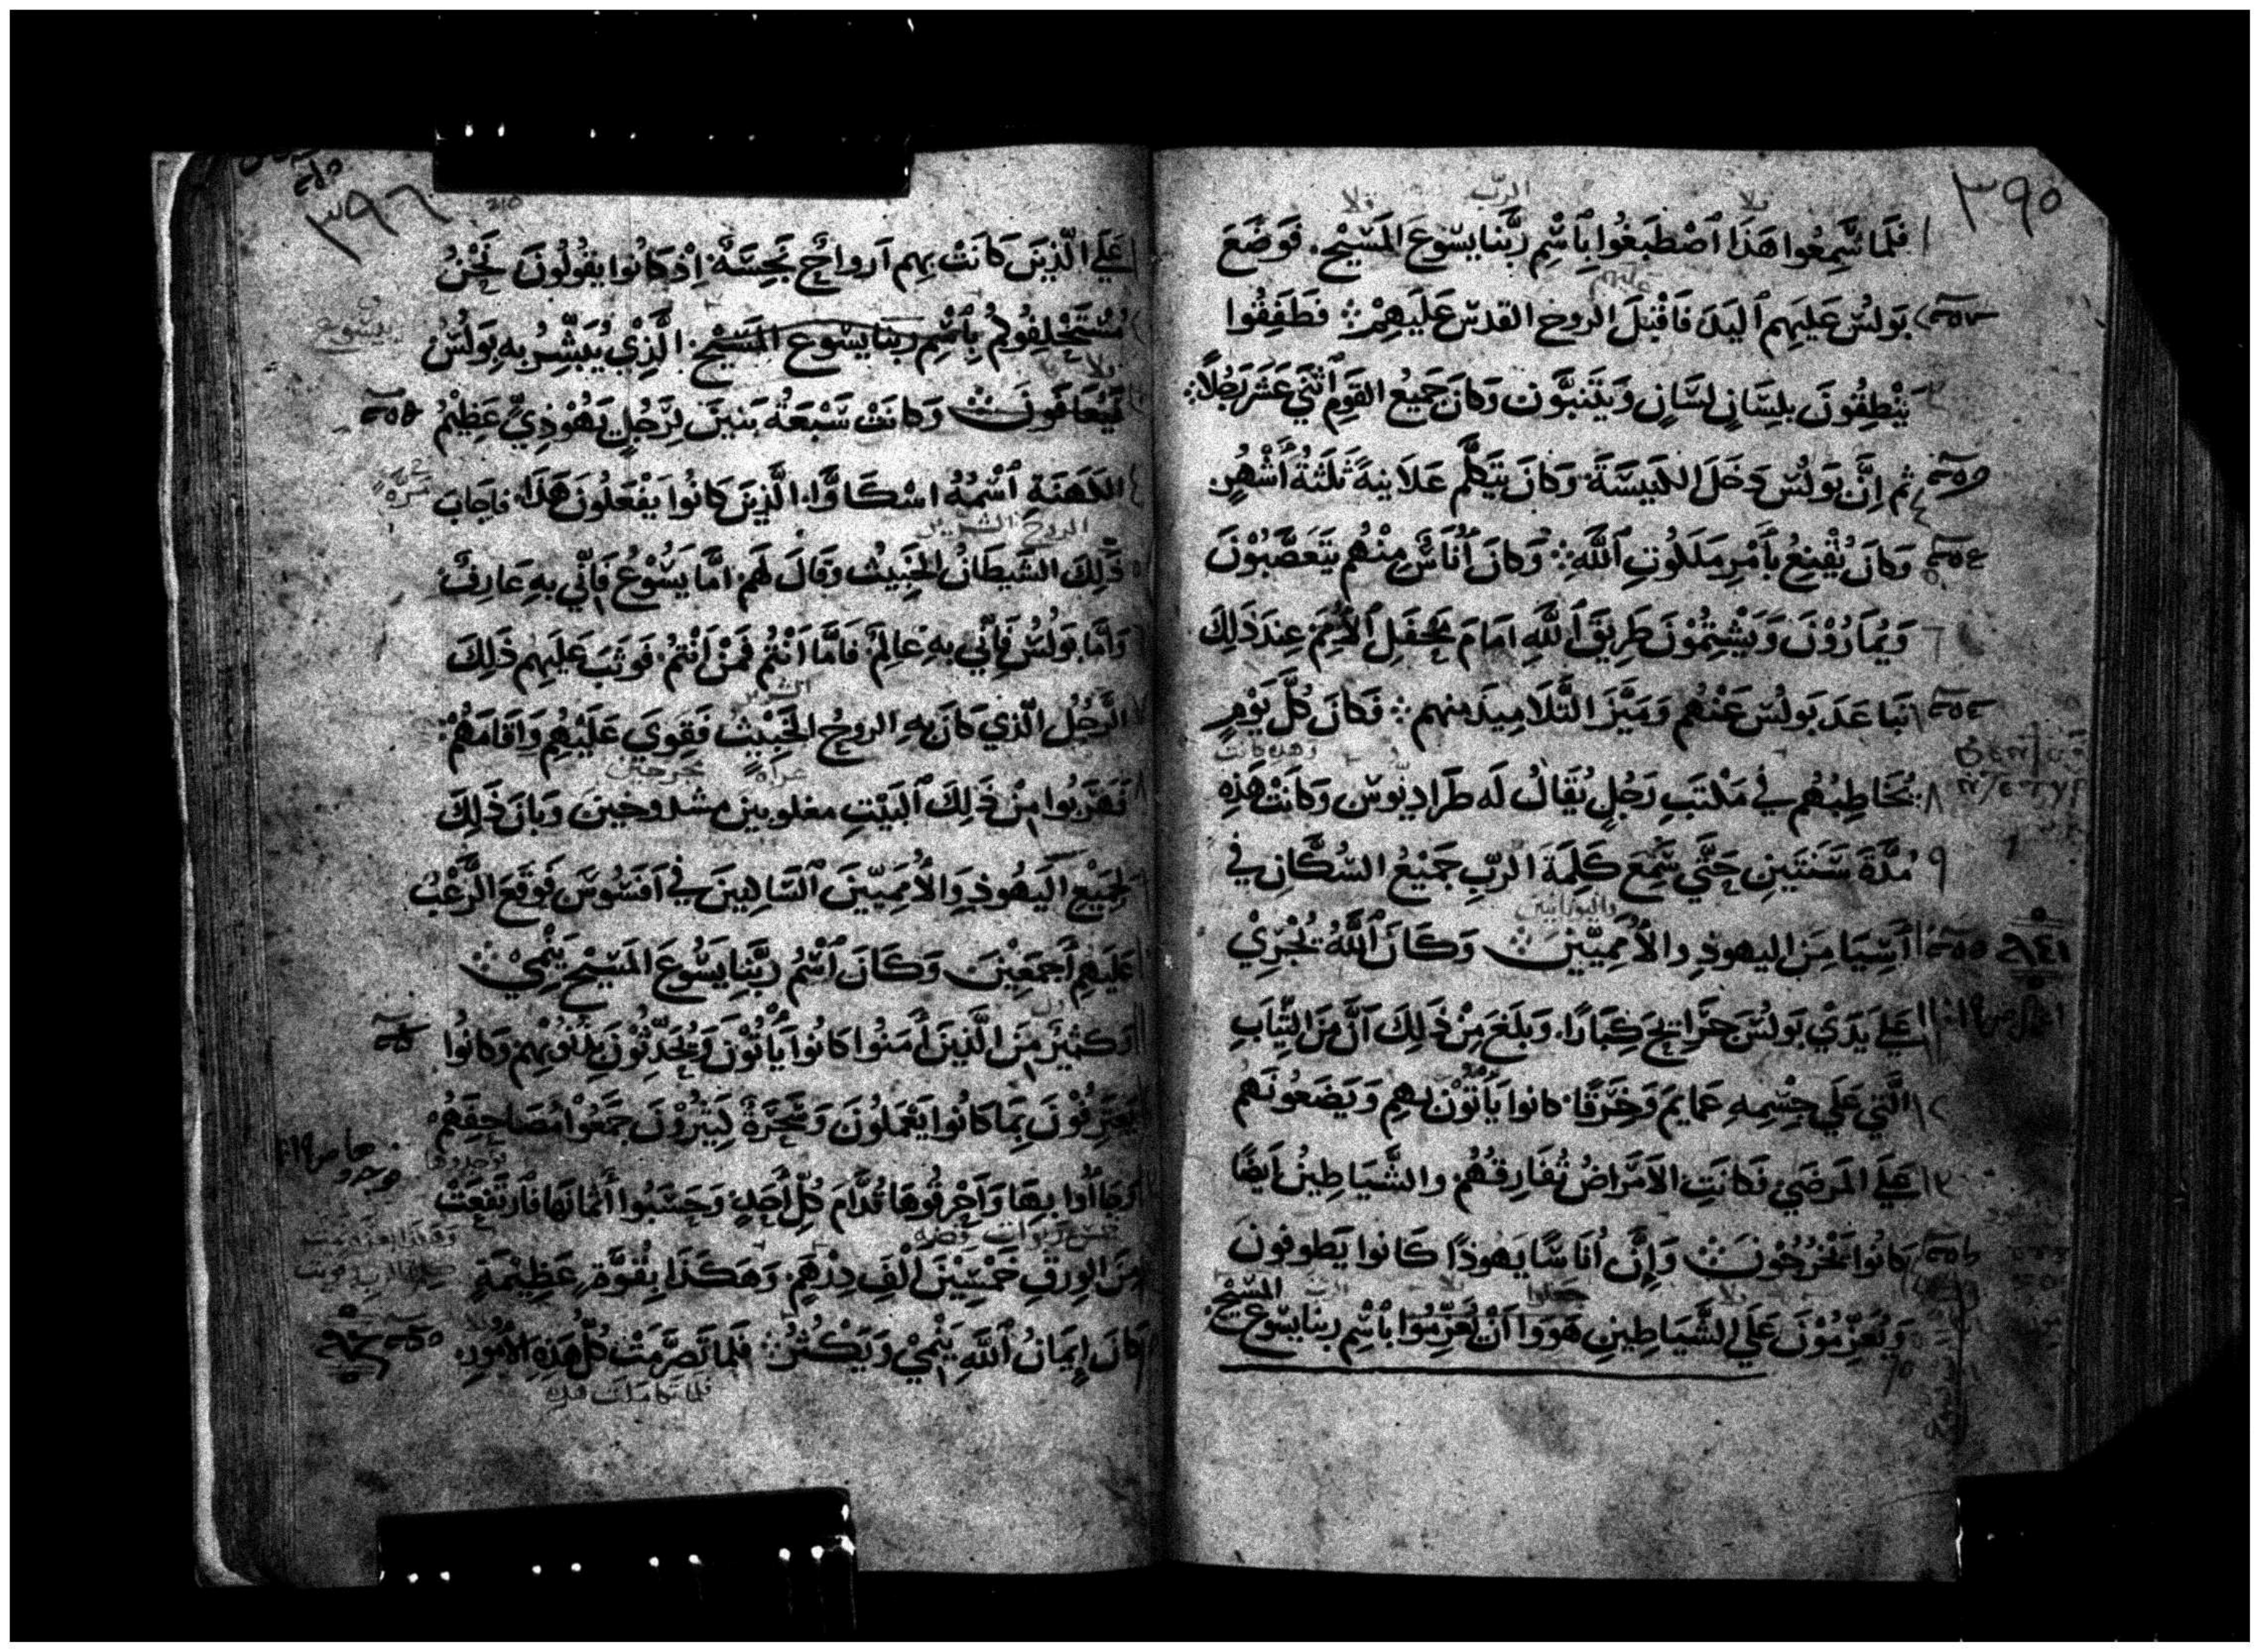 ٣٩٥
فَلَما سَّمِعُوا هَذَا ٱصْطَبَغُوا بِٱسْمِ رَبَّنا يسَوعَ المَسَيْحِ. فَوَضَعَ
بَولسُ عَليَهِم ٱليَدَ فَاقْبَلَ الروح القدس عَلَيهِمْ فَطَفِقُوا
يَنْطِقُونَ بِلِسَانٍ لسَانٍ وَيَتَنبَّون وَكانَ جَمِيعُ القَومِ ٱثنَي عَشَرَ رَجُلاً
ثم اِنَّ بَولسَ دَخَلَ الكَنِيسَةَ وَكانَ يَتَكَلَّم عَلاَنِيةً ثَلَثَةُ أَشْهُرٍ
وَكانَ يُقْنِعُ بأمْرِ مَلَكُوتِ ٱللَّهِ وَكانَ أُنَاسٌ مِنْهُم يَتَعَصَّبُوْنَ
وَيُمَارُوْنَ وَيَشْتِمُوْنَ طَرِيقَ ٱللَّهِ امَامَ مَحْفَلِ ٱلأُمَمِ عِندَ ذَلِكَ
تَباعَدَ بَولسَ عَنْهُم وَمَيَّزَ التَّلَامِيذَ مِنهم فَكانَ كُلَّ يَوْمٍ
يُخَاطِبُهُم فيْ مَكْتَبِ رَجُلٍ يُقَالُ لَه طَرَادِيْوس وَكَانَتْ هَذِهِ
مُدَّةَ سَنَتَينِ حَتَّي سَمِعَ كَلِمَةَ الرَبِّ جَمِيْعُ السُكَّانِ في
آسِيَا مِنَ اليهوذِ والأُمَمِيّين وَكَانَ ٱللَّهُ يُجْرِيْ
عَلي يَدَيْ بَولسَ جَرَايحَ كِبَارًا. وَبلَغَ مِنْ ذَلِكَ اَنَّ مِنَ الثِّيَابِ
الَّتي عَلَي جِسْمِهِ عَمايمَ وَخِرَقًا كانوا يَأتَوْنَ بهم وَيَضَعُونَهم
عَلَي المَرضَي فَكانَتِ الاَمَراضُ تُفَارِقُهُم والشَّيَاطِينُ اَيضًا
كانوا يَخْرُجُونَ وَاِنَّ اُنَاسًا يَهوذًا كَانوا يَطوفونَ
وَيُعَزِّمُوْنَ عَلَي الشَّيَاطِينِ هَوَوا اَنْ يُعَزِّمُوا بٱسْمِ ربنا يسَوعَ المَسَيْحِ
٣٩٦
عَلَي الَّذِينَ كَانَتْ بِهِم اَرواحٌ نَجِسَةٌ اِذْ كانُوا يَقُولُونَ نَحْنُ
نَسْتَحْلِفُوكُم بِٱسْمِ ربَنا يسَوعَ المَسَيْحِ الَّذِيْ يُبَشِّرُ بِهِ بَولُسُ
وَكانَتْ سَّبْعَةُ بَنينَ لِرَّجُلٍ يَهُوْذِيٍّ عَظِيْمُ
الكَهَنَةِ ٱسْمُهُ اسْكَاوَّا الَّذِينَ كانُوا يَفْعَلُونَ هَذَا فاجَابَ
ذَلِكَ الشَيطَانُ الخَبِيثُ وَقالَ لَهم اَمَّا يَسُوْعُ فَاِنّي بِهِ عَارِفٌ
وَاَمَّا بَولُسُ فَاِنّي بِهِ عَالِمٌ فَامَّا اَنْتُم فَمَنْ اَنْتُم فَوثَبَ عَليهِم ذَلِكَ
الرَّجُلُ الَّذي كانَ بهِ الروحُ الخَبيْثِ فَقِويَ عَلَيْهِم وَاَقامَهُمْ
فَهَرَبُوا مِنْ ذَلِكَ ٱلبَيْتِ مغلوبين مشدوخين وَبانَ ذَلِكَ
لِجَمِيْعِ اليَهوذِ وَالأُمَمِيّينَ ٱلسَاكِنِينَ في اَفسُوسَ فَوقَعَ الرَّعْبُ
عَليهِم أَجمَعْينَ وَكَانَ ٱسْمُ رَبَّنا يَسُوعَ المَسَيْحِ يَنْمِيْ
وَكَثيرٌ مِنَ الَّذِينَ أمَنُوا كانُوا يَأتُوْنَ وَيُحَدِّثُوْنَ بِذُنُوْبِهِمْ وَكانُوا
يَعْتَرِفُوْنَ بِمَا كانُوا يَعْمَلُونَ وَسَحَرَةٌ كَثِيرُوْنَ جَمَعُوْا مُصَاحِفَهُم
وَجَاأُوا بِهَا وَأَحْرَقُوهَا قُدَّامَ كُلِّ أَحَدٍ وَحَسَبُوا أَثمَانَهَا فَارتَفَعَتْ
مِنَ الوِرقِ خَمْسِيْنَ اَلْفِ دِرْهَمٍ وَهَكَذَا بِقُوَّةٍ عَظِيْمَةٍ
كَانَ اِيمَانُ ٱللَّهِ يَنْمِيْ وَيَكْثُرُ فَلَما تَصَرَّمَتْ كُلُّ هَذِهِ الأُمُورِ